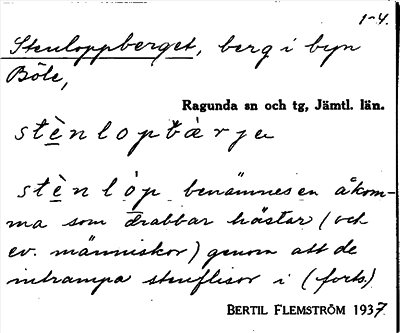 1-4.
Stenloppberget, berg i byn
Böle,
Ragunda sn och tg, Jämtl. län.
stènlopbàrje
stènlòp benämnes en åkom-
ma som drabbar hästar (och
ev. människor) genom att de
intrampa stenflisor i (forts.)
BERTIL FLEMSTRÖM 1937.